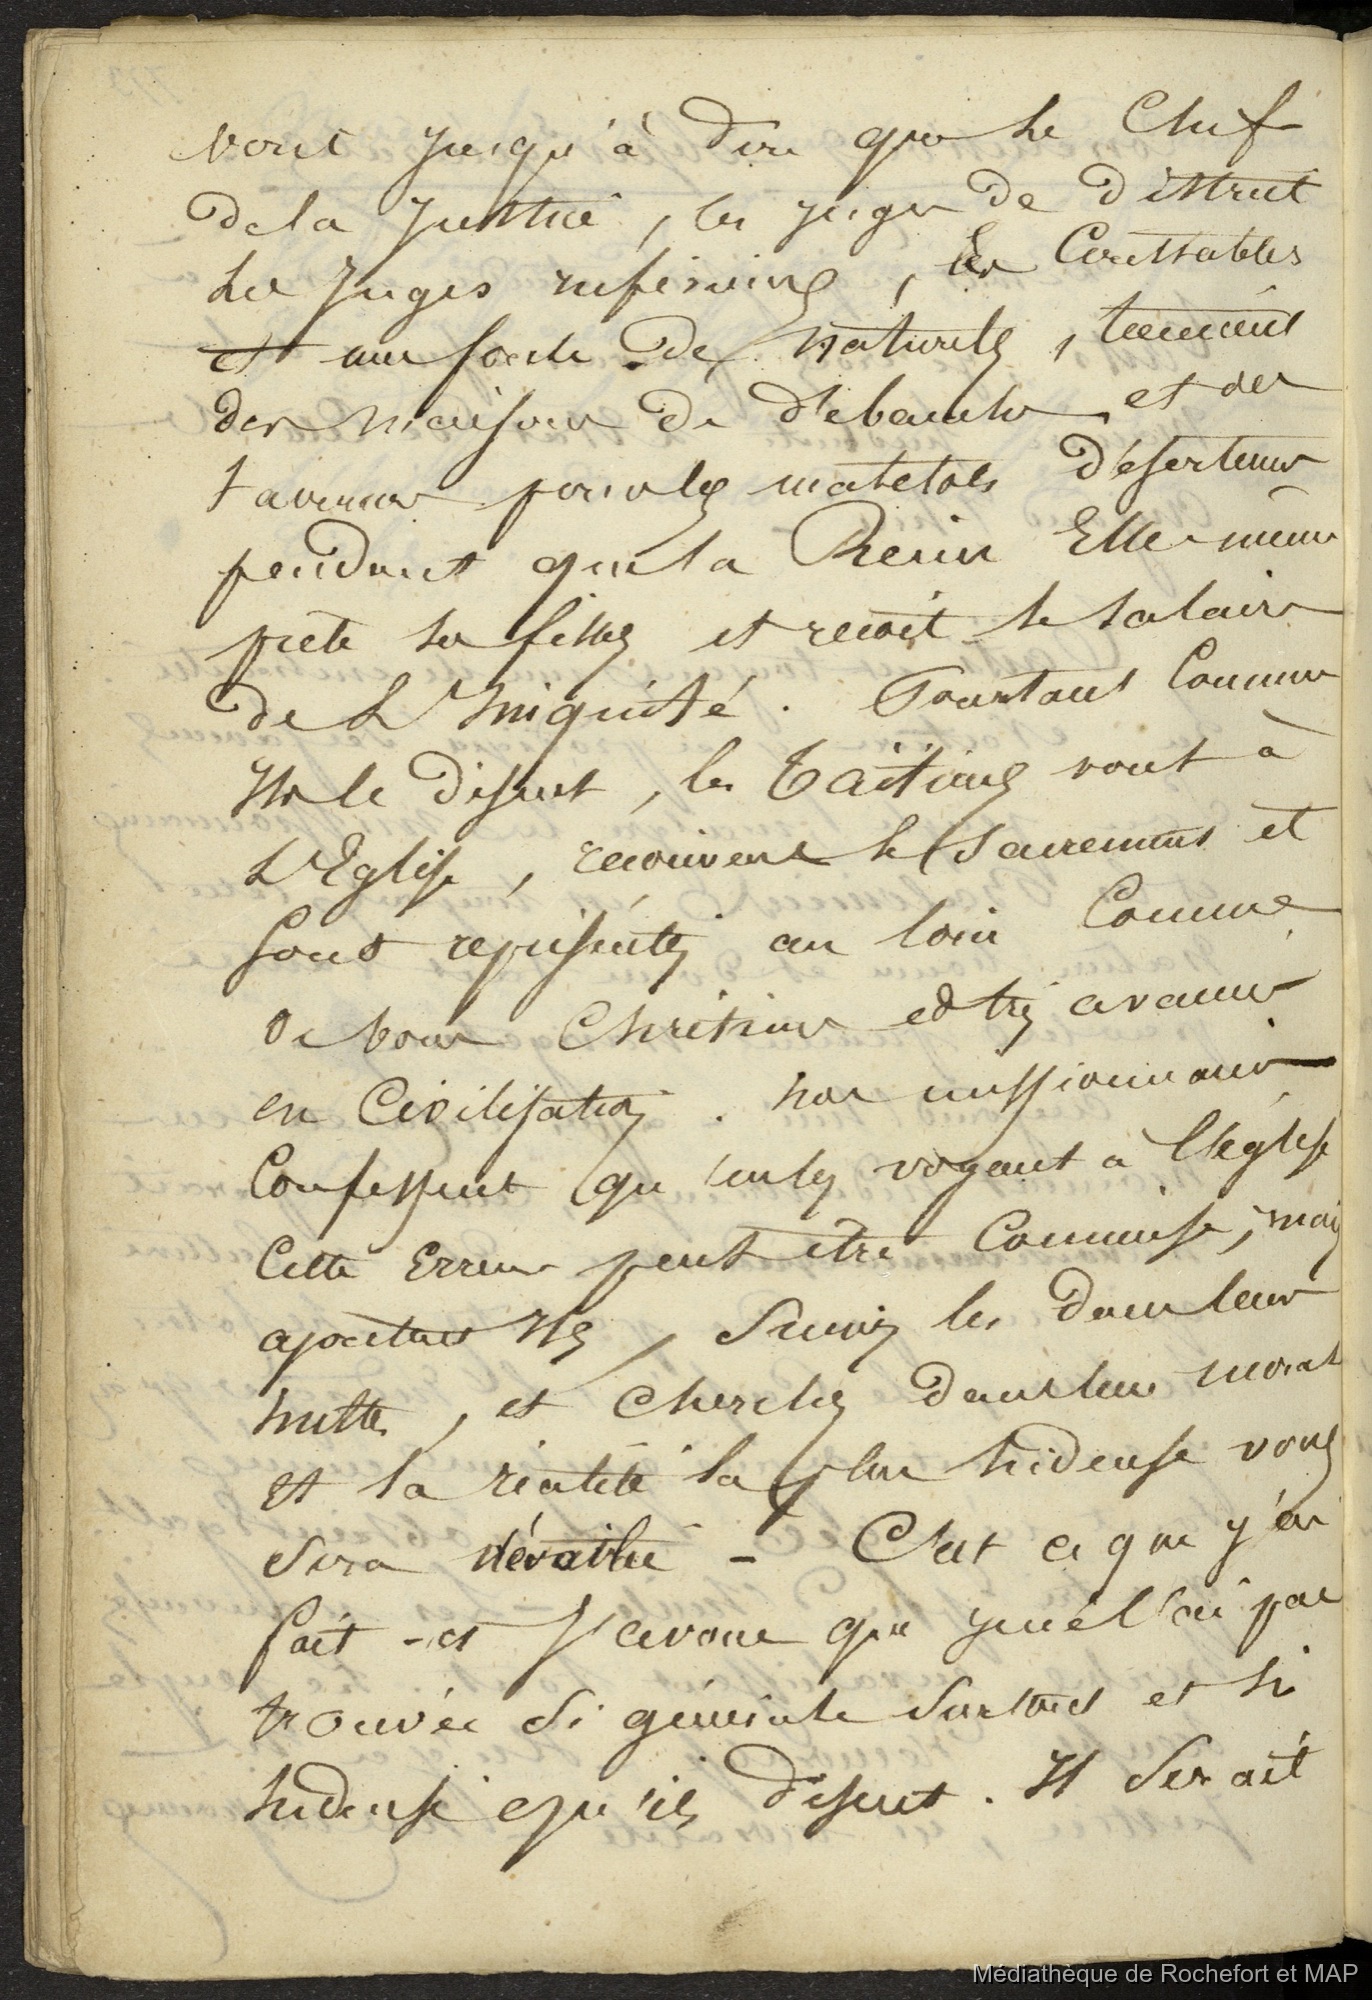 vont jusqu'à dire que le Chef
de la Justice, les juges de district
les Juges inférieurs, les Constables
et une foule de naturels, tiennent
des maisons de débauche et des
tavernes pour les matelots déserteurs
pendant que la Reine Elle-même
prête ses filles et recoit le salaire
de L'Iniquité. Pourtant Comme
Ils le disent, les Taïtiens vont à
L'Eglise, recoivent les Sacrements et
sont représentés au loin Comme
de bons Chrétiens et très avancés
en Civilisation. nos missionnaires
Confessent qu'en les voyant à l'église
Cette Erreur peut être Commise, mais
ajoutent Ils, Suivez les dans leurs
huttes, et Cherchez dans leur moral
et la réalité la plus hideuse vous
sera dévoilée - C'est ce que j'ai
fait - et J'avoue que je ne l'ai pas
trouvée si générale surtout et si
hideuse qu'ils disent. Il serait
Médiathèque de Rochefort et MAP